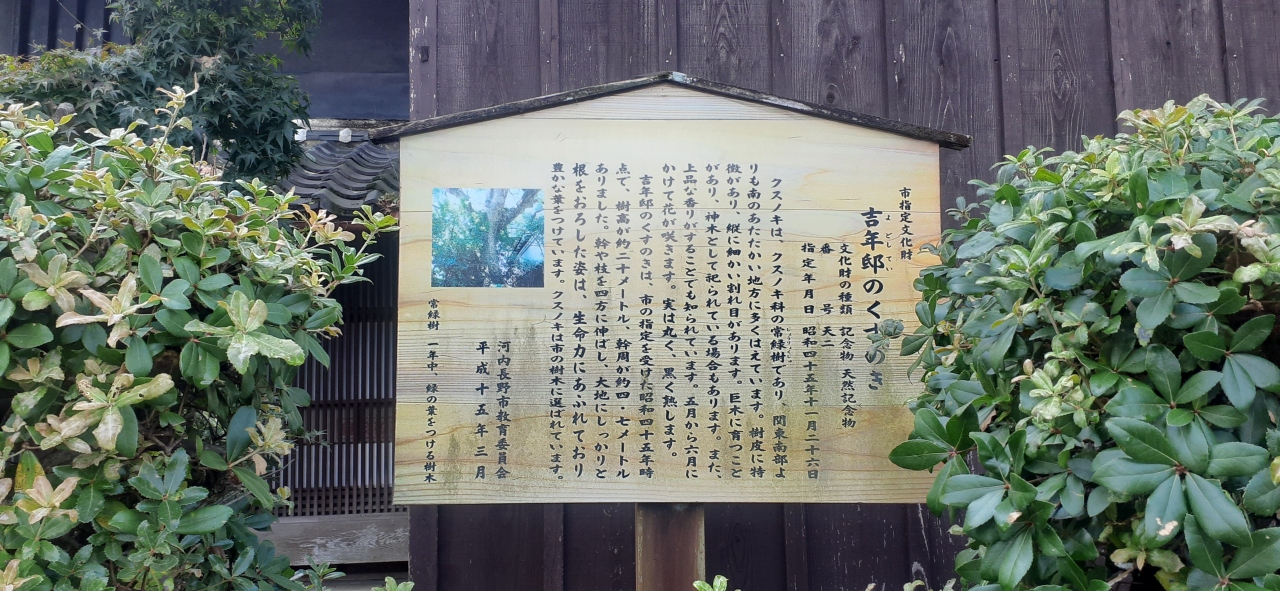 市指定文化財
吉年邸のくすのき
よどしてい
文化財の種類 記念物 天然記念物
番号 天二
指定年月日 昭和四十五年十一月二十六日
クスノキは、クスノキ科の常緑樹であり、関東南部よ
りも南のあたたかい地方に多くはえています。樹皮に特
徴があり、縦に細かい割れ目があります。巨木に育つこと
があり、神木として祀られている場合もあります。また、
上品な香りがすることでも知られています。五月から六月に
かけて花が咲きます。実は丸く、黒く熟します。
吉年邸のくすのきは、市の指定を受けた昭和四十五年時
点で、樹高が約二十メートル、幹周が約四・七メートル
ありました。幹や枝を四方に伸ばし、大地にしっかりと
根をおろした姿は、生命力にあふれており
豊かな葉をつけています。クスノキは市の樹木に選ばれています。
河内長野市教育委員会
平成十五年三月
常緑樹 一年中、緑の葉をつける樹木